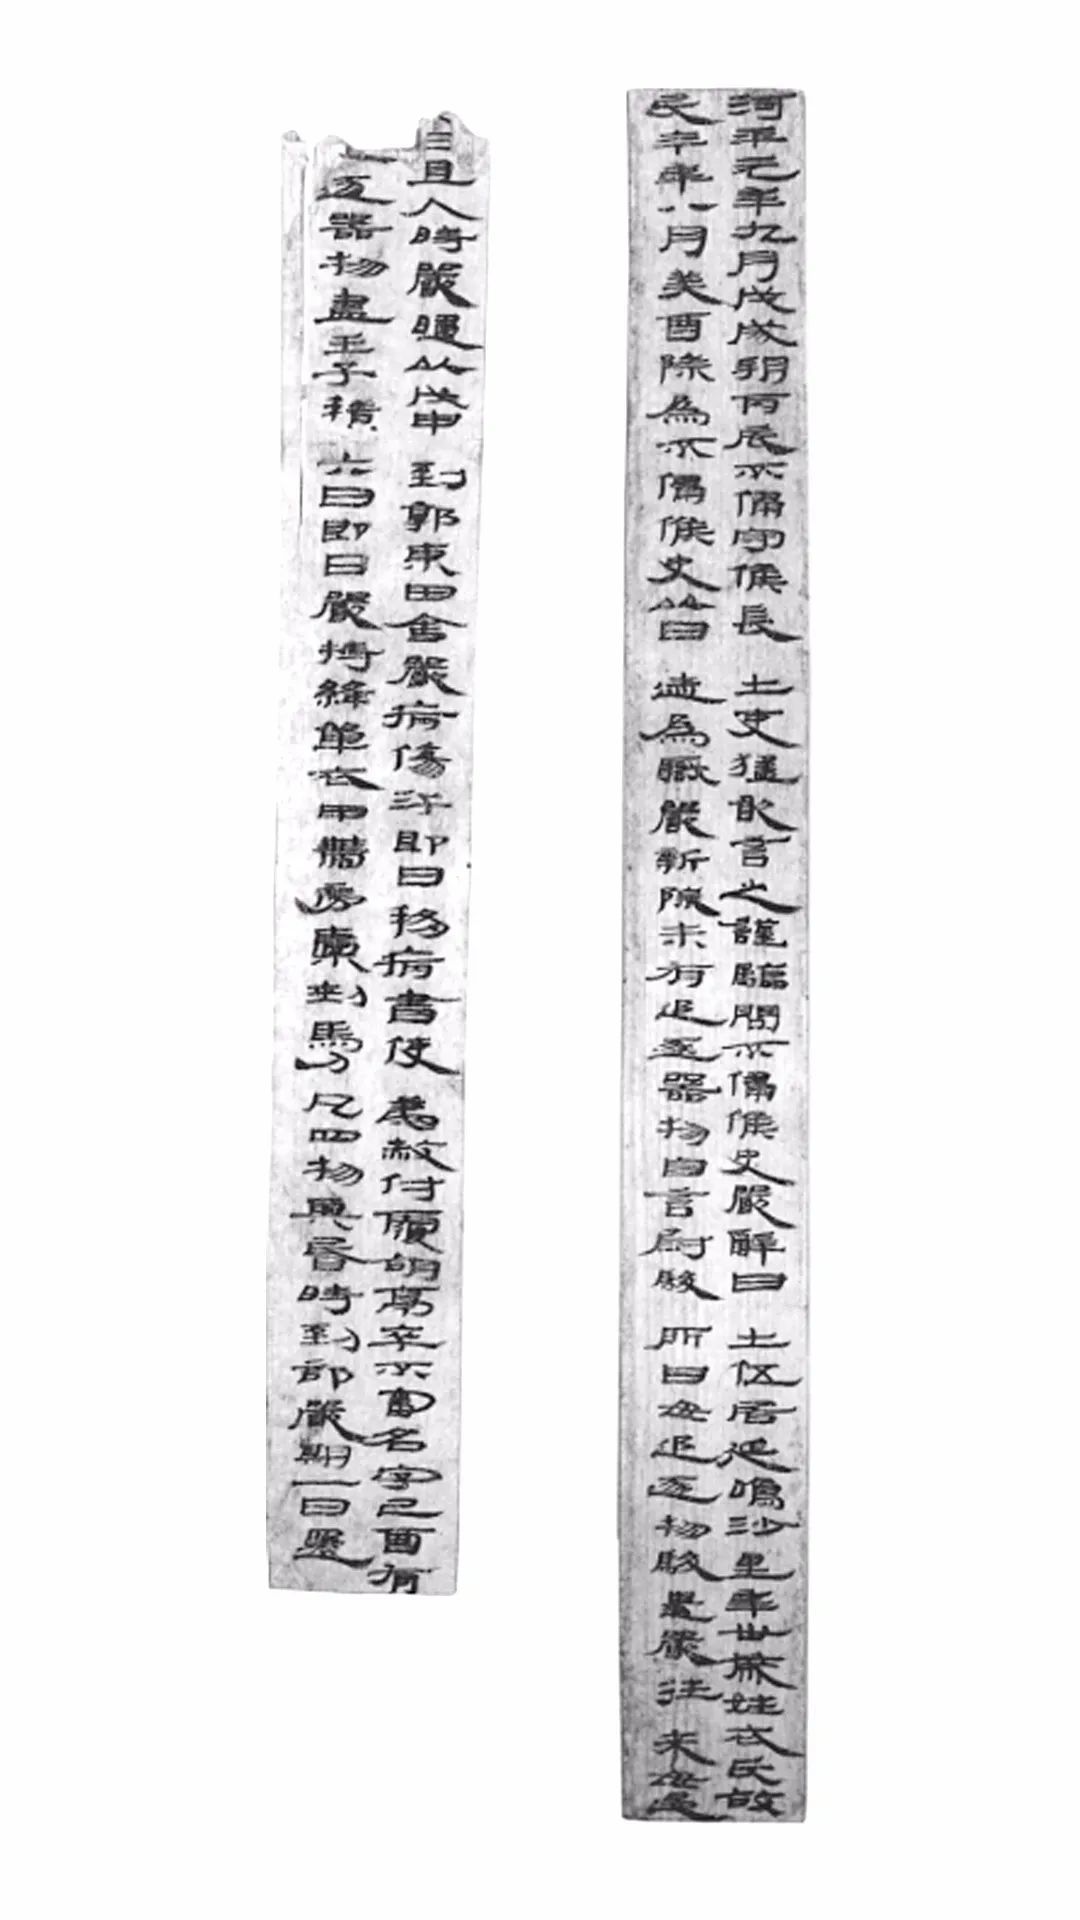 河平元年九月戊戌朔丙辰不侵守候長 士吏猛敢言之謹驗問不侵候史嚴辭曰 士伍居延鳴沙里年卅歲姓衣氏故
民今年八月癸酉除為不侵候史以日 迹為職嚴新除未有追逐器物自言尉駿 所曰毋追逐物駿遣嚴往來毋過
且入時嚴以戊申 到郭東田舍嚴病傷汗即日移病書使 為赦付覆胡亭卒不審名字己酉有
逐器物盡壬子積 六日即日嚴持絳單衣甲 到 馬 凡四物 昏時到部嚴期一日還